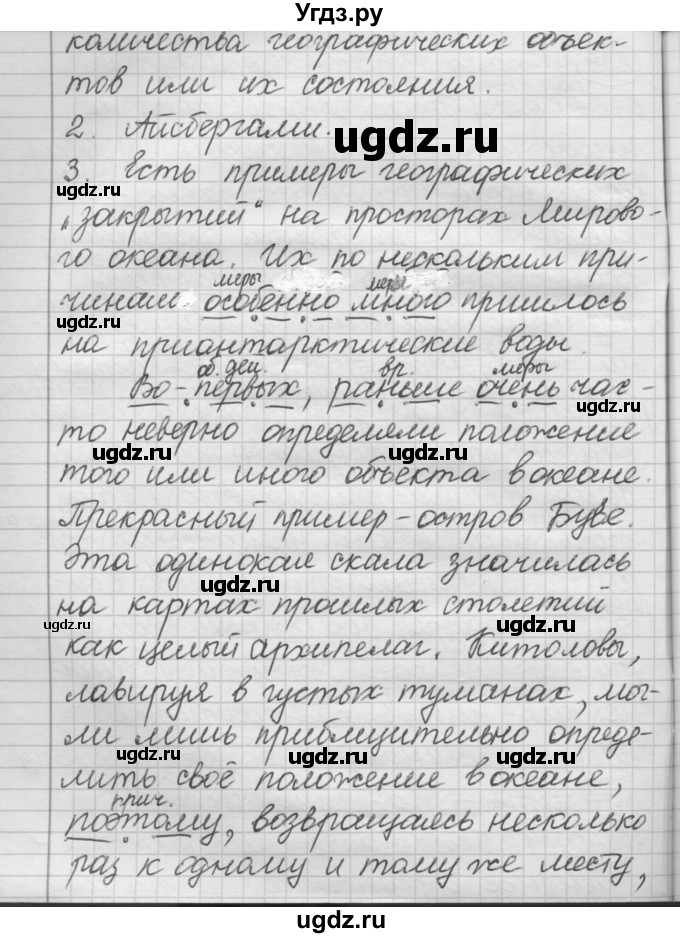 Угдз.ру
количества географических объек-
тов или их состояния.
ugdz.ru
2. Айсбергами.
ugdz.ru
3. Есть примеры географических
ugdz.ru
„закрытий" на просторах Мирово-
го океана. Их по нескольким при-
меры меры
чинам особенно много пришлось
ugdz.ru
на приантарктические воды.
об. дей. вр. меры
Во-первых, раньше очень час-
ugdz.ru
то неверно определяли положение
ugdz.ru ugdz.ru
того или иного объекта в океане.
Прекрасный пример - остров Буве.
Эта одинокая скала значилась
ugdz.ru
на картах прошлых столетий
ugdz.ru ugdz.ru
как целый архипелаг. Китоловы,
лавируя в густых туманах, мог-
ли лишь приблизительно опреде-
ugdz.ru
лить своё положение в океане,
ugdz.ru
прич.
поэтому, возвращаясь несколько
раз к одному и тому же месту,
ugdz.ru
ugdz.ru